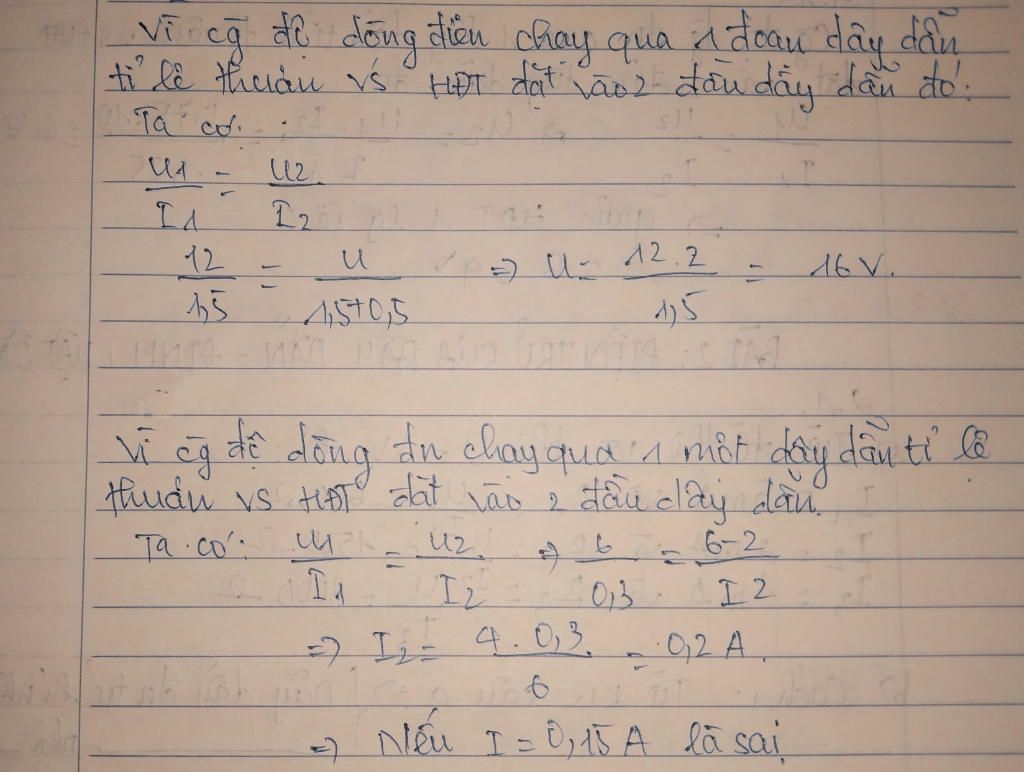 Vì cg độ dòng điện chạy qua 1 đoạn dây dẫn
tỉ lệ thuận vs HĐT đặt vào 2 đầu dây dẫn đó:
Ta có:
U1/I1 = U2/I2
12/1,5 = U/1,5+0,5 => U = 12.2/1,5 = 16 V.
Vì cg độ dòng đn chạy qua 1 một dây dẫn tỉ lệ
thuận vs HĐT đặt vào 2 đầu dây dẫn.
Ta có: U1/I1 = U2/I2 => 6/0,3 = 6-2/I2
=> I2 = 4.0,3/6 = 0,2 A.
=> Nếu I = 0,15 A là sai